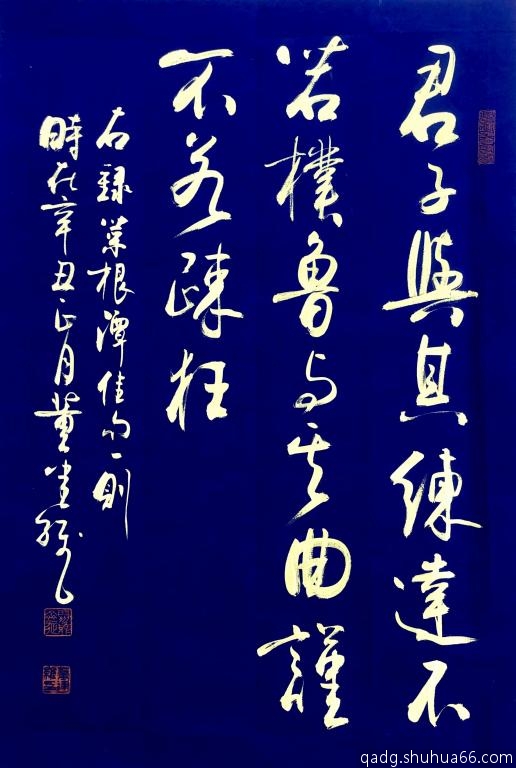 君子與其練達不
若樸魯与其曲謹
不若疎狂
右録菜根潭佳句一則
時在辛丑正月董
qadg.shuhua66.com